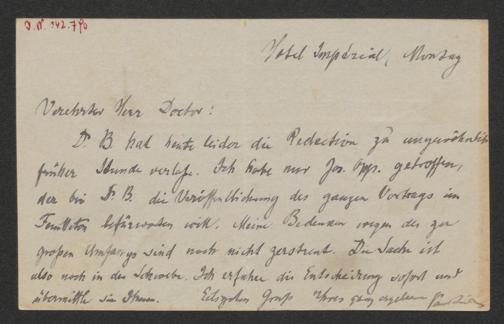 J.N. 142.790
Hotel Impérial, Montag
Verehrter Herr Doctor:
Dr B hat heute leider die Redaction zu ungewöhnlich
früher Stunde verlassen. Ich habe nur Jos. Opp. getroffen,
der bei Dr B. die Veröffentlichung des ganzen Vortrags im
Feuilleton befürworten will. Meine Bedenken wegen des zu
großen Umfangs sind noch nicht zerstreut. Die Sache ist
also noch in der Schwebe. Ich erfahre die Entscheidung sofort und
übermittle sie Ihnen. Gruß Ihres ganz ergebenen